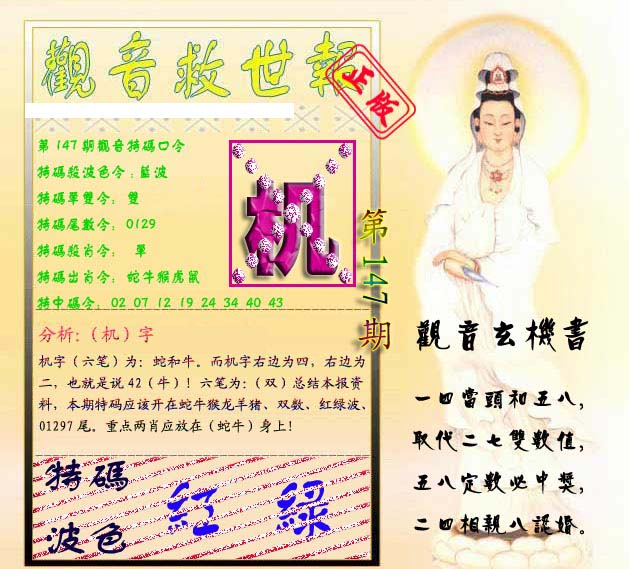 觀音救世報
正版
第147期觀音特碼口令
特碼殺波色令：藍波
特碼單雙令： 雙
特碼尾數令： 0129
特碼殺肖令： 單
特碼出肖令： 蛇牛猴虎鼠
特中碼令： 02 07 12 19 24 34 40 43
机
第147期
分析:（机）字
机字（六笔）为：蛇和牛。而机字右边为四，右边为
二，也就是说42（牛）！六笔为：（双）总结本报资
料，本期特码应该开在蛇牛猴龙羊猪、双数、红绿波、
01297尾。重点两肖应放在（蛇牛）身上！
特碼
波色
紅 綠
觀音玄機書
一四當頭和五八，
取代二七雙數值，
五八定數必中獎，
二四相親八認婚。